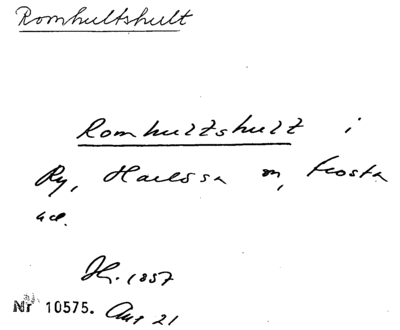 Romhultshult
Romhultshult i
Ry, Harlösa sn, Frosta
hd.
1857
Nr 10575.